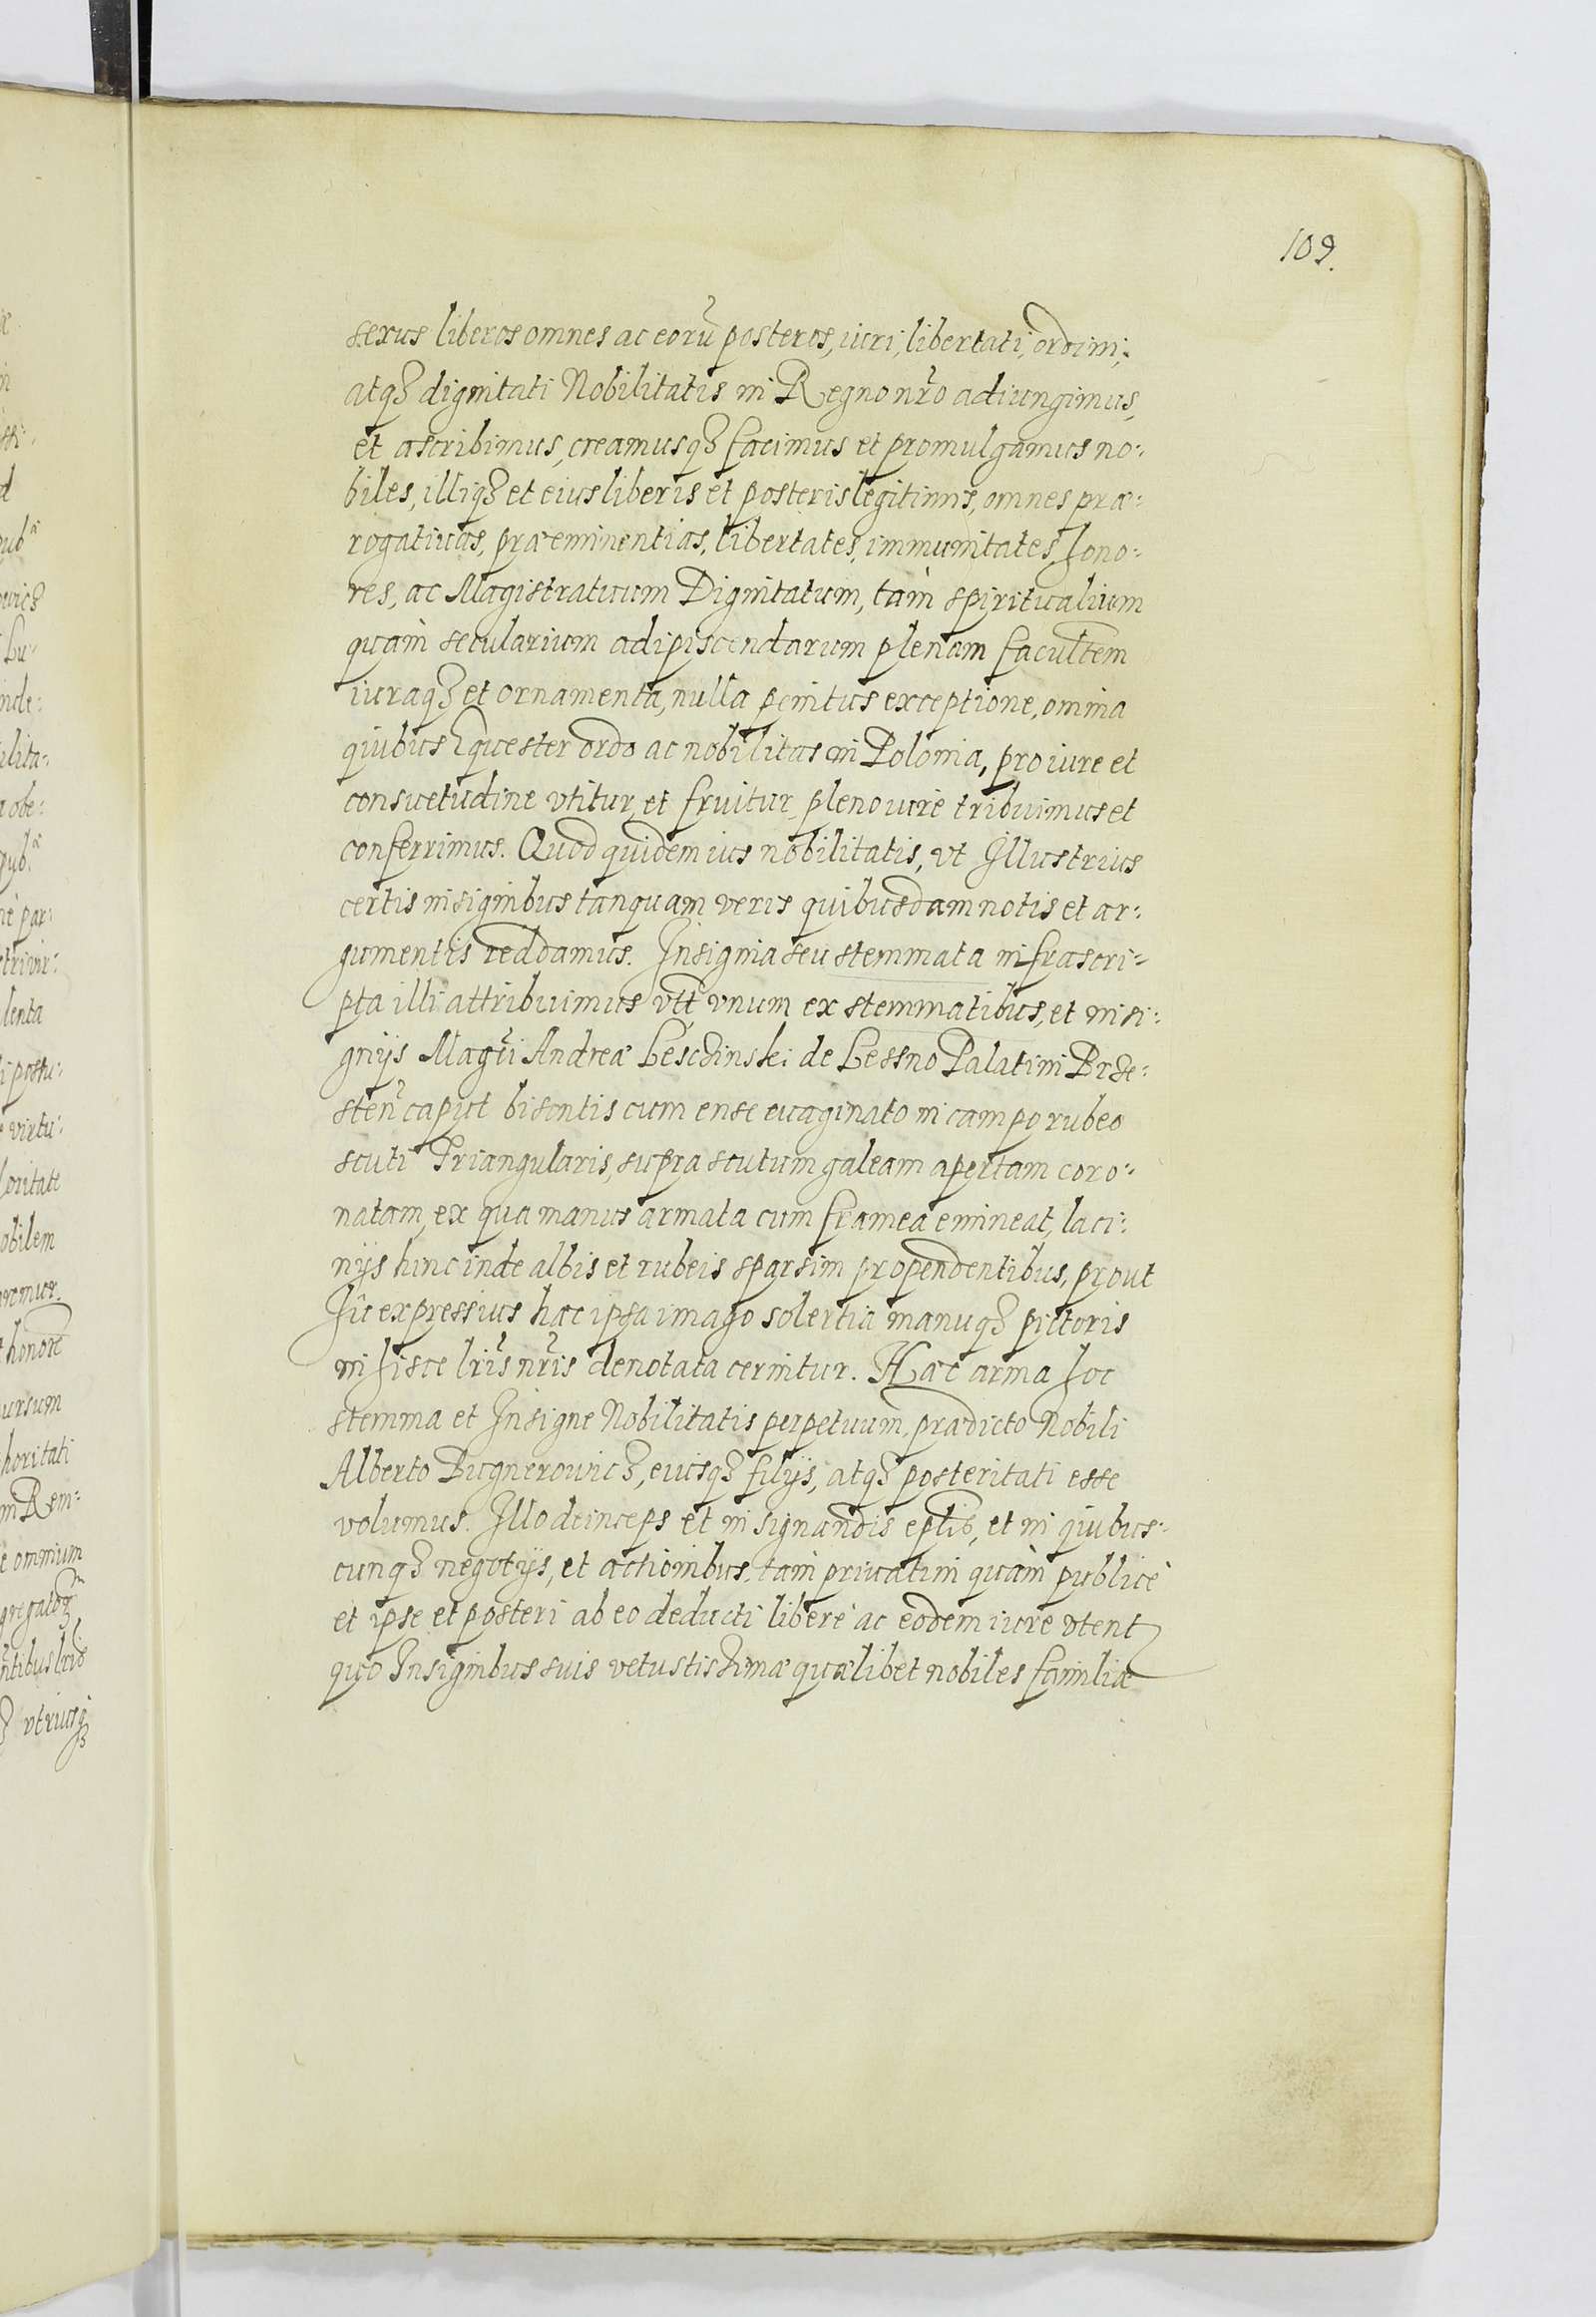 109.
sexus liberos omnes ac eorū posteros, iuri, libertati, ordini,
atqȝ dignitati Nobilitatis in Regno nr̃o adiungimus,
et ascribimus, creamusqȝ facimus et promulgamus no:
biles, illiqȝ et eius liberis et posteris legitimis, omnes præ:
rogatiuas, præeminentias, libertates, immunitates, hono:
res, ac Magistratuum Dignitatum, tam spiritualium
quam secularium adipiscendarum plenam facultem
iuraqȝ et ornamenta, nulla penitus exceptione, omnia
quibus Equester ordo ac nobilitas in Polonia, pro iure et
consuetudine vtitur, et fruitur, pleno iure tribuimus et
conferrimus. Quod quidem ius nobilitatis, vt Illustrius
certis insignibus tanquam veris quibusdam notis et ar:
gumentis reddamus. Insignia seu stemmata infrascri:
pta illi attribuimus vtt vnum ex stemmatibus, et insi:
gnijs Magci Andreæ Leschinski de Lessno Palatini Brze:
sten̄ caput bisontis cum ense euaginato in campo rubeo
scuti Triangularis, supra scutum galeam apertam coro:
natam, ex qua manus armata cum framea emineat, laci:
nijs hinc inde albis et rubeis sparsim propendentibus, prout
hîc expressius hæc ipsa imago solertia manuqȝ pictoris
in hisce lr̃is nr̃is denotata cernitur. Hæc arma hoc
stemma et Insigne Nobilitatis perpetuum, prædicto Nobili
Alberto Bugnerowicȝ, eiusqȝ filijs, atqȝ posteritati esse
volumus. Illo deinceps et in signandis eptis, et in quibus:
cunqȝ negotijs, et actionibus, tam priuatim quàm publicè
et ipse et posteri ab eo deducti liberè ac eodem iure vtent
quo Insignibus suis vetustissimæ quælibet nobiles familiæ